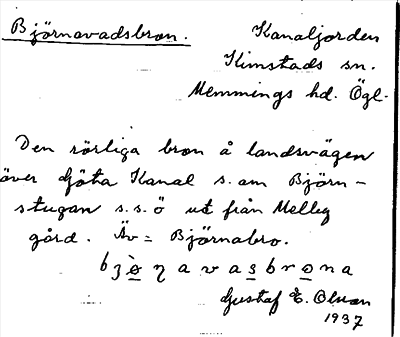 Björnavadsbron.
Kanaljorden
Kimstads sn.
Memmings hd. Ögl.
Den rörliga bron å landsvägen
över Göta Kanal s. om Björn-
stugan s.s.ö ut från Melby
gård. Äv = Björnabro.
Gustaf E. Olsson
1937